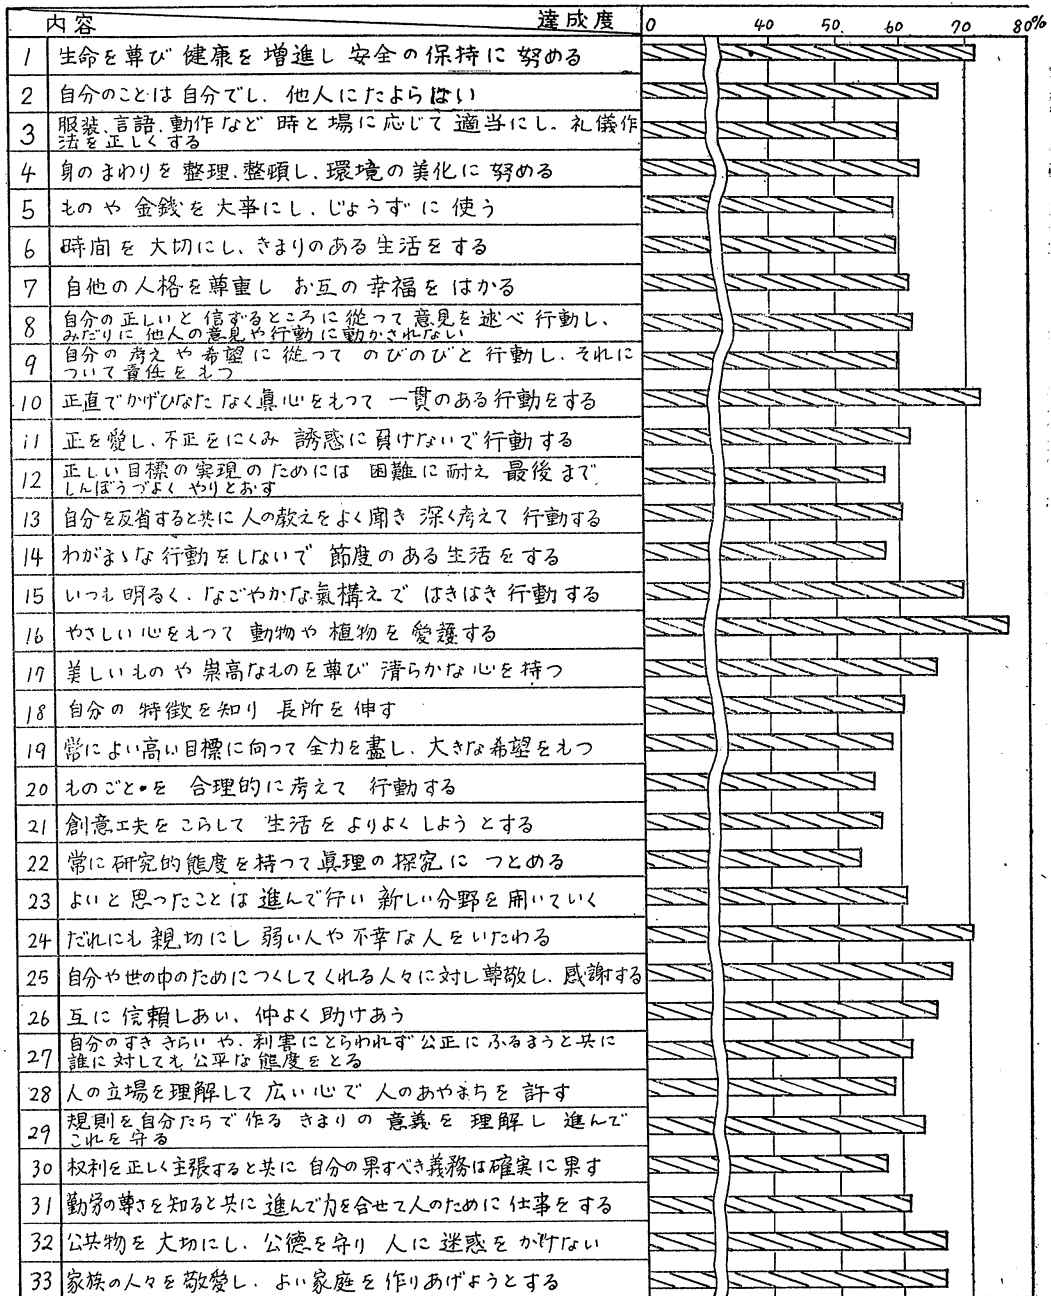 内容 達成度 0 40 50 60 70 80%
1 生命を尊び 健康を増進し 安全の保持に 努める
2 自分のことは自分でし、他人にたよらない
3 服装、言語、動作など 時と場に応じて 適当にし、礼儀作
法を正しくする
4 身のまわりを 整理、整頓し、環境の美化に 努める
5 ものや 金銭を 大事にし、じょうずに 使う
6 時間を 大切にし、きまりのある生活をする
7 自他の人格を尊重し お互の 幸福を はかる
8 自分の正しいと 信ずるところに 従つて 意見を述べ 行動し、
みだりに 他人の意見や行動に動かされない
9 自分の 考えや希望に 従つて のびのびと 行動し、それに
ついて責任をもつ
10 正直でかげひなた なく眞心をもつて 一貫のある行動をする
11 正を愛し、不正をにくみ 誘惑に 負けないで行動する
12 正しい目標の実現の ためには 困難に耐え 最後まで
しんぼうづよく やりとおす
13 自分を反省すると共に 人の教えをよく聞き 深く考えて 行動する
14 わがまゝな行動をしないで 節度のある生活をする
15 いつも明るく、なごやかな氣構えで はきはき 行動する
16 やさしい心をもつて 動物や 植物を 愛護する
17 美しいものや 崇高なものを尊び 清らかな心を持つ
18 自分の 特徴を知り 長所を伸す
19 常によい高い目標に向つて 全力を盡し、大きな希望をもつ
20 ものごとを 合理的に考えて 行動する
21 創意工夫を こらして 生活を よりよく しよう とする
22 常に研究的態度を持つて眞理の 探究に つとめる
23 よいと 思つたことは 進んで行い 新しい分野を開いていく
24 だれにも 親切にし 弱い人や不幸な人をいたわる
25 自分や世の中のためにつくしてくれる人々に対し尊敬し、感謝する
26 互に 信頼しあい、仲よく助けあう
27 自分のすき きらいや、利害にとらわれず 公正に ふるまうと共に
誰に対しても 公平な 態度をとる
28 人の立場を理解して 広い心で 人のあやまちを 許す
29 規則を自分たちで作る きまりの 意義を 理解し 進んで
これを守る
30 权利を正しく主張すると共に 自分の果すべき義務は確実に果す
31 勤労の尊さを知ると共に 進んで力を合せて人のために 仕事をする
32 公共物を 大切にし、公德を守り 人に 迷惑を かけない
33 家族の人々を敬愛し、よい家庭を作りあげようとする